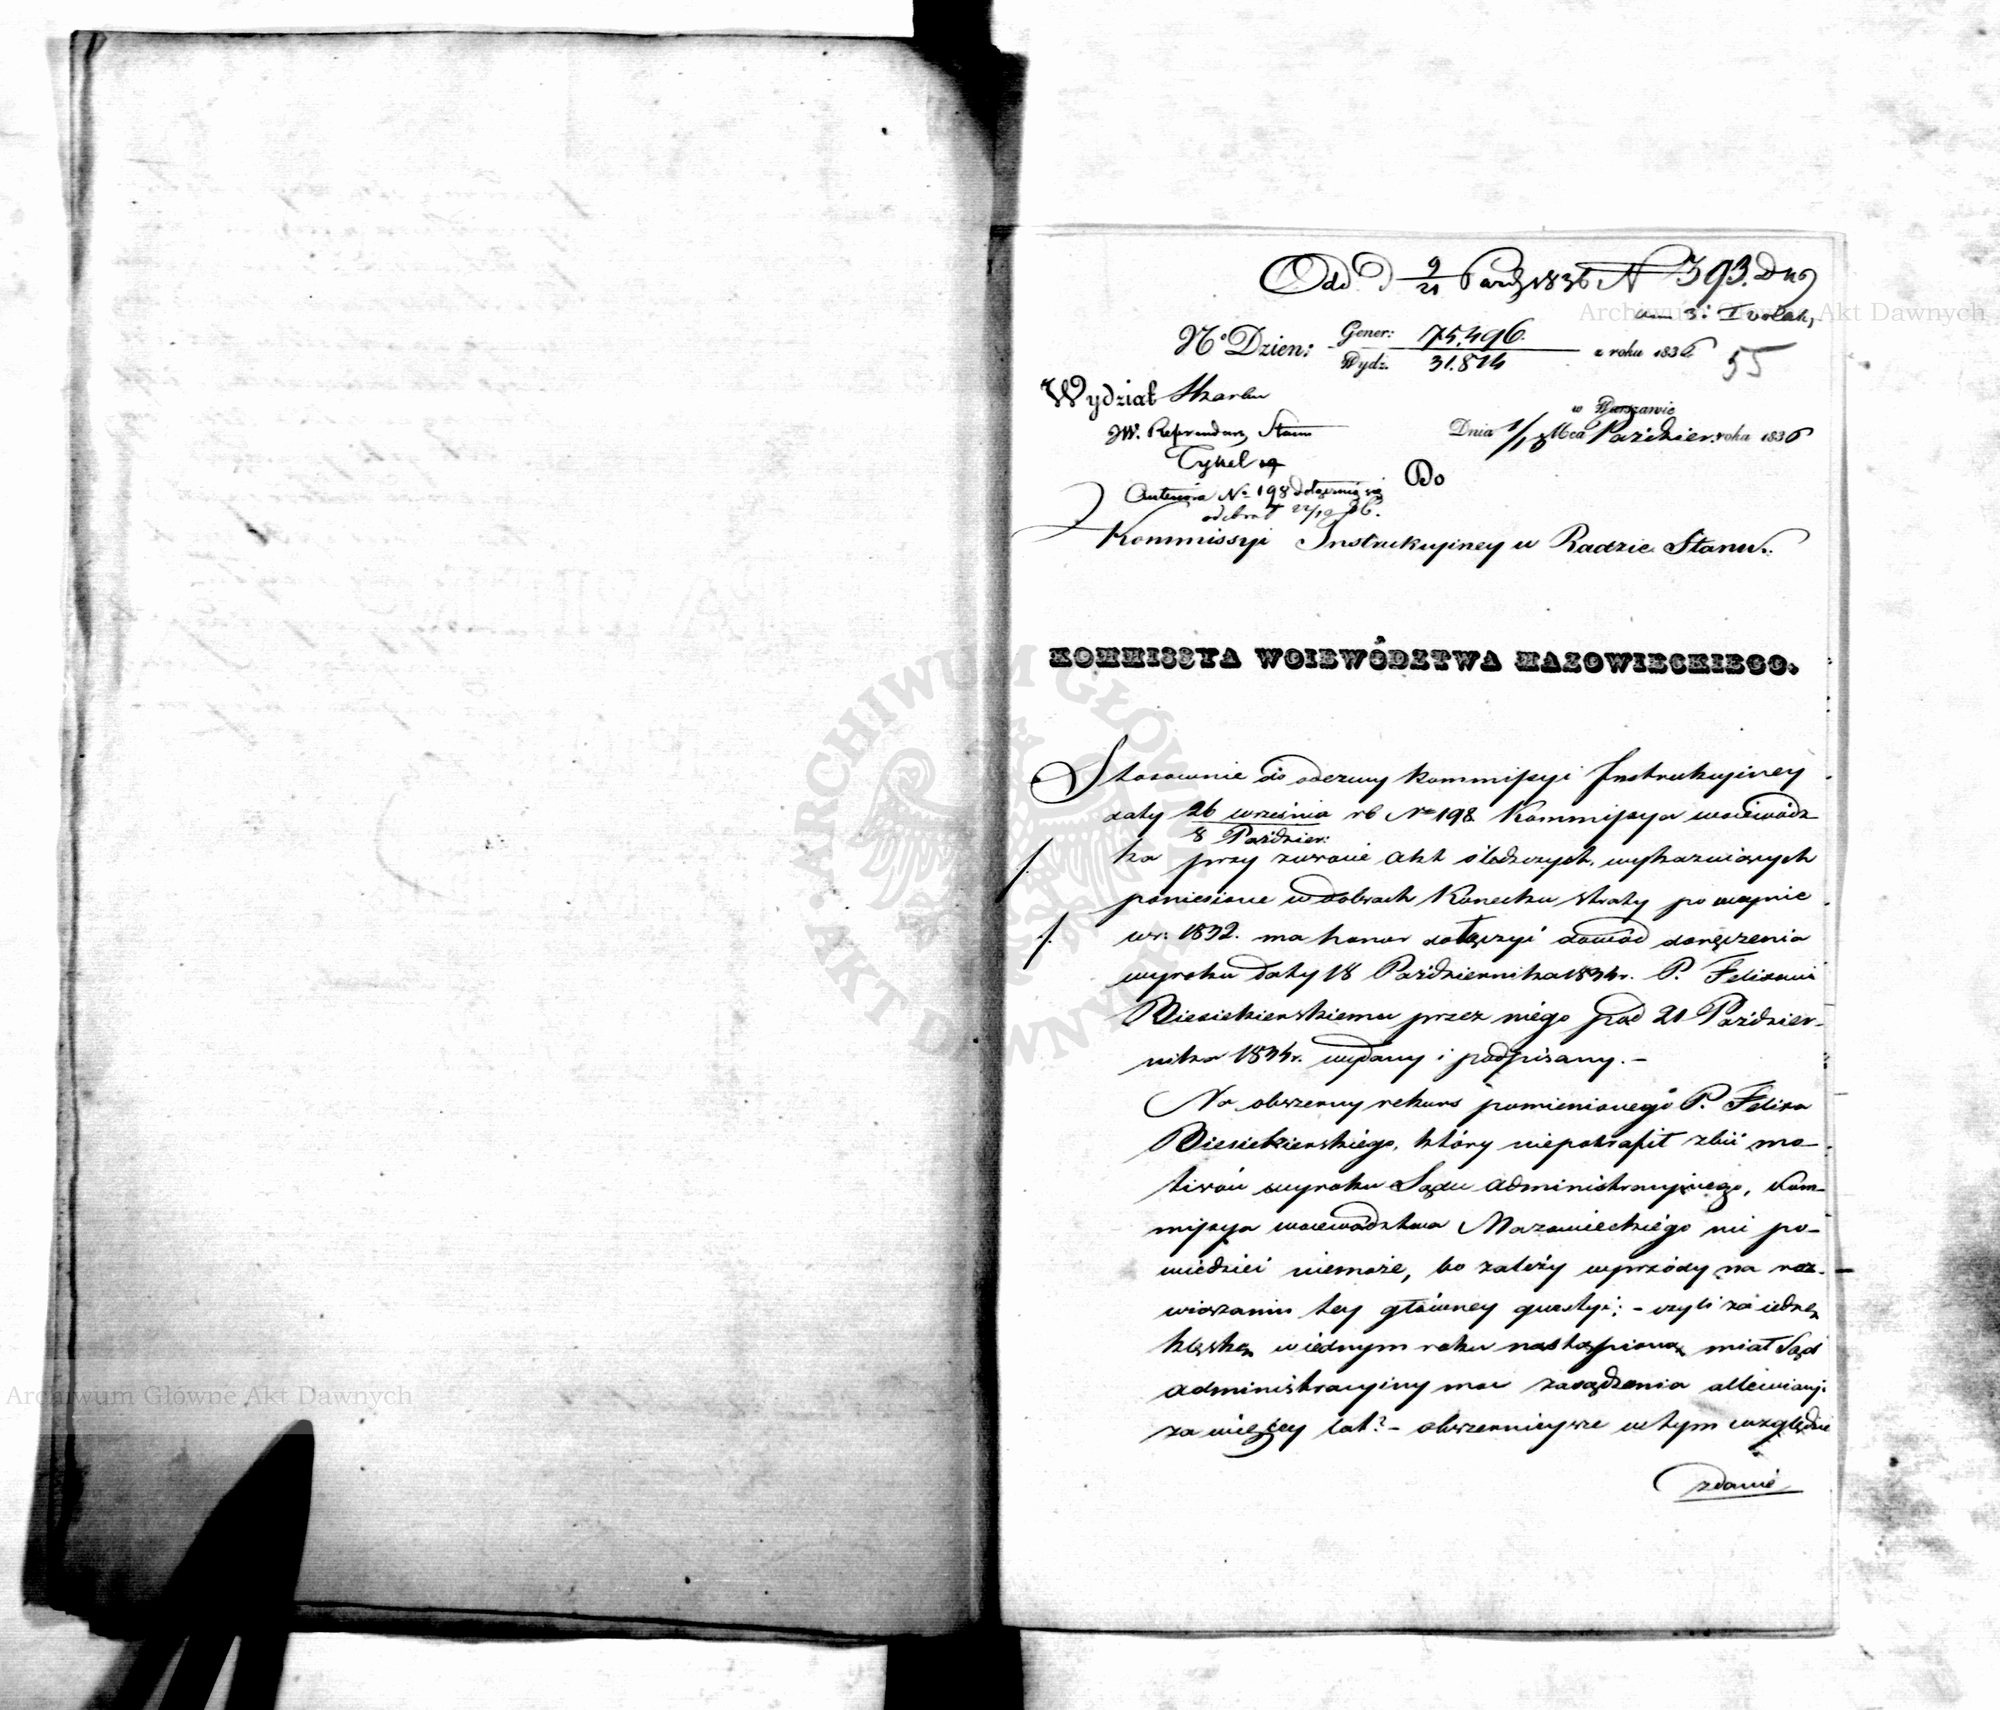 Odd. d 9/21 Paźdz 1836 N 393. Dng
N° Dzien: Gener: 75,496. z roku 1836
Wydz. 31.814
55
Wydział Skarbu
w Warszawie
JW. Referendarz Stanu
Dnia 1/13 Mca Paździer: roku 1836
Tykel
Do
N° 198
odebrał 22/10 36.
Kommissyi Instrukcyiney w Radzie Stanu.
KOMMISSYA WOIEWÓDZTWA MAZOWIECKIEGO.
Stosownie do odezwy Kommissyi Instrukcyiney
daty 26 września rb N° 198 Kommissya woiewódz-
8 Paździer:
ka przy zwrocie akt śledczych, wykazuiących
poniesione w dobrach Konecku straty po woynie
w r. 1832. ma honor dołączyć dowód doręczenia
wyroku daty 18 Października 1834 r. P. Felixowi
Biesiekierskiemu przez niego pod 21 Paździer-
nika 1834 r. wydany i podpisany. –
Na obszerny rekurs pomienionego P. Felixa
Biesiekierskiego, który niepotrafił zbić mo-
tivów wyroku Sądu administracyinego, Kom-
missya woiewództwa Mazowieckiego nic po-
wiedzieć niemoże, bo zależy wprzódy na roz-
wiązaniu tey główney questyi; – czyli za iedną
klęskę w iednym roku nastąpioną miał Sąd
administracyiny moc zasądzenia allewiacyi
za więcey lat? – obszernieysze w tym względzie
zdanie